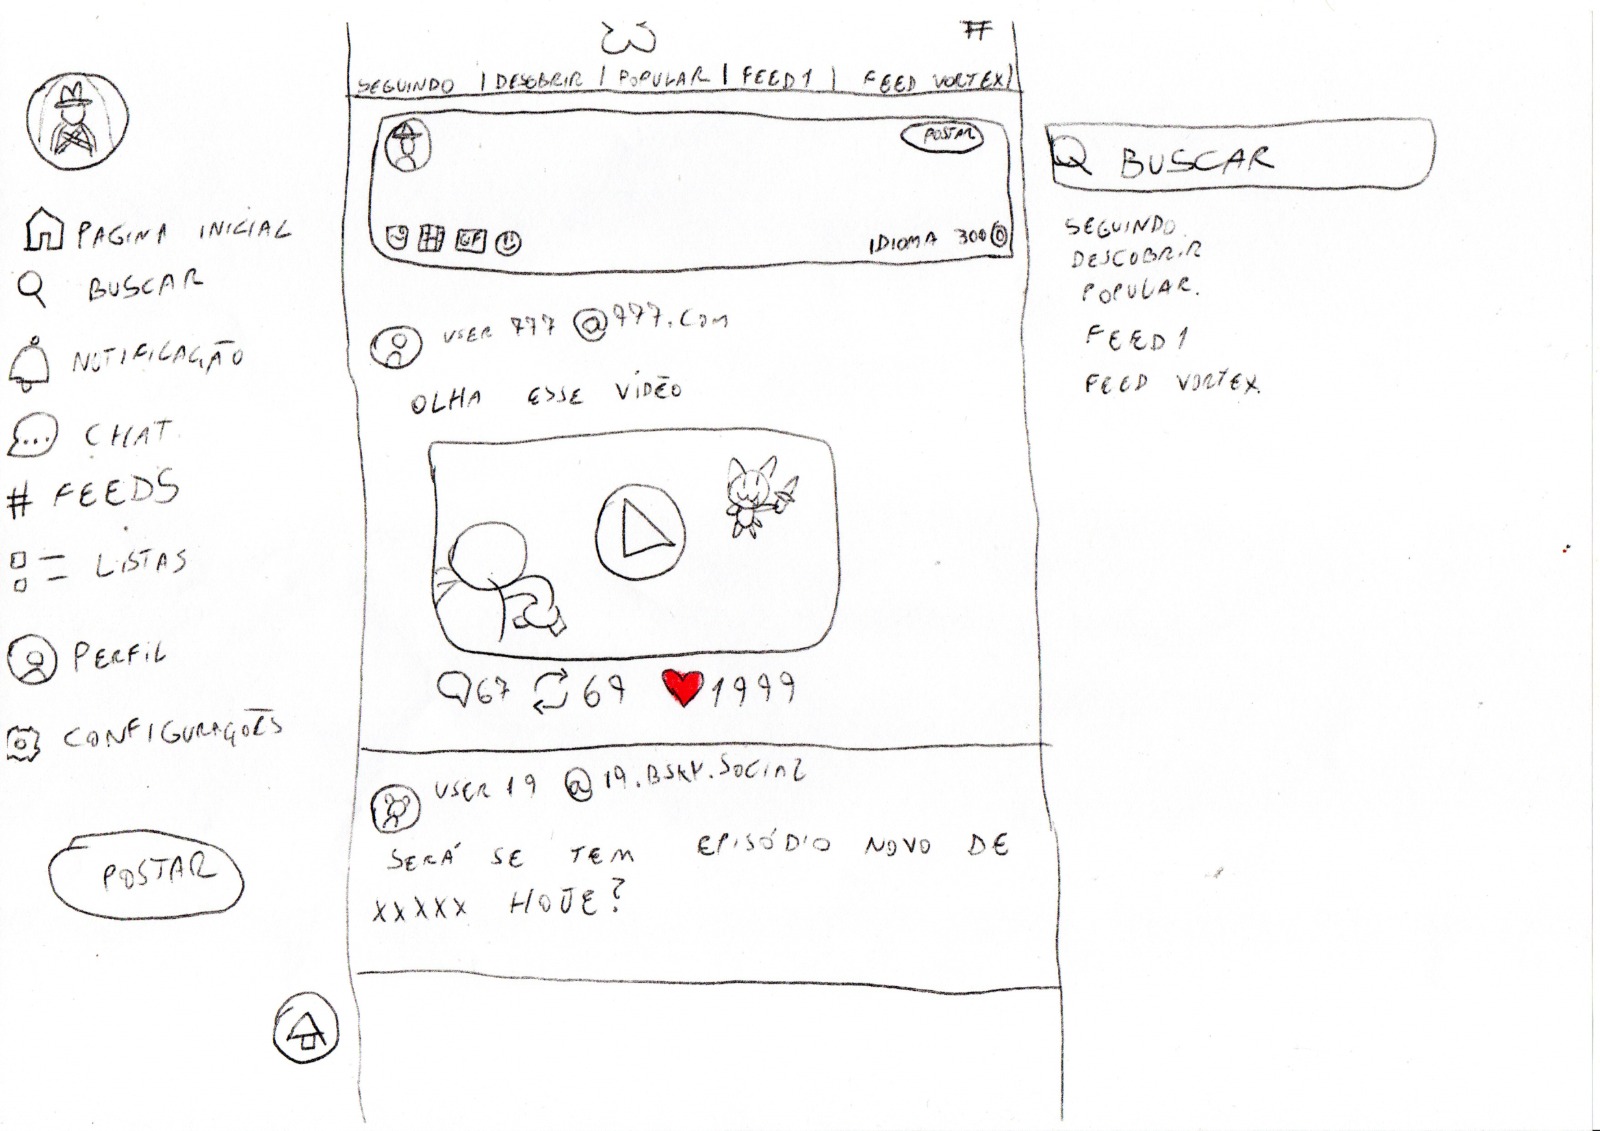 PAGINA INICIAL
BUSCAR
NOTIFICAÇÃO
CHAT
# FEEDS
LISTAS
PERFIL
CONFIGURAÇÕES
POSTAR
#
SEGUINDO | DESCOBRIR | POPULAR | FEED 1 | FEED VORTEX |
POSTAR
GIF
IDIOMA 300
USER 777 @777.COM
OLHA ESSE VÍDEO
67 69 1999
USER 19 @19.BSKY.SOCIAL
SERÁ SE TEM EPISÓDIO NOVO DE
XXXXX HOJE?
BUSCAR
SEGUINDO.
DESCOBRIR
POPULAR.
FEED 1
FEED VORTEX.